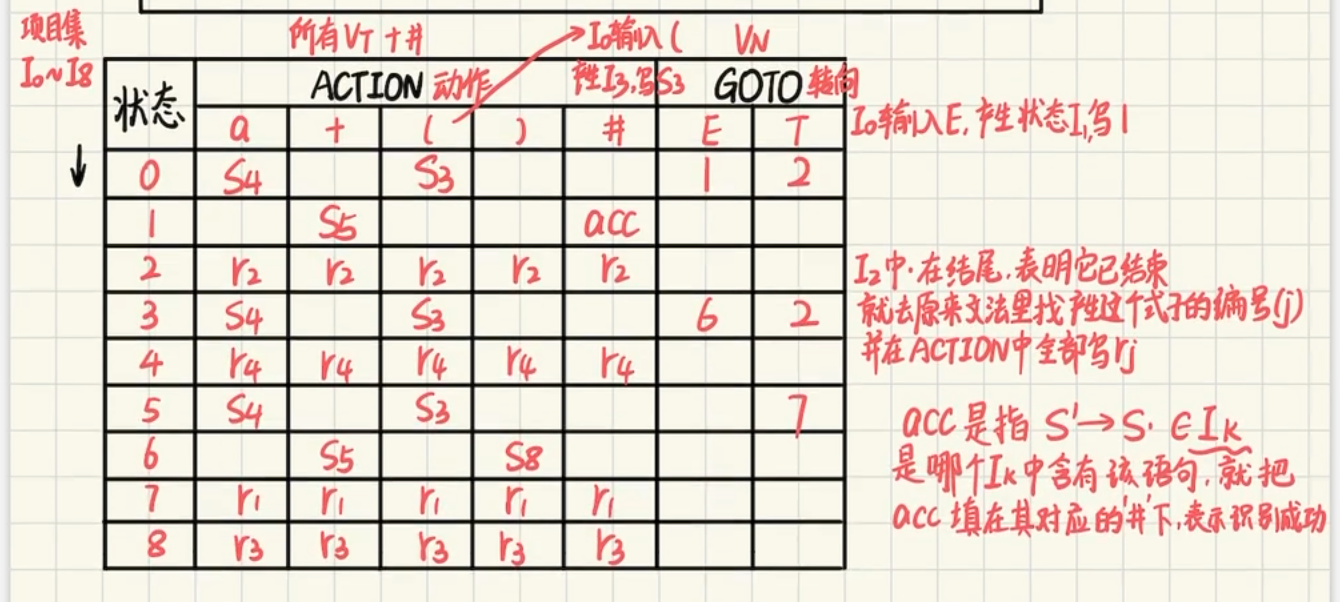 项目集
I₀~I8
所有VT+#
I₀输入(
产生I3,写S3
VN
状态
ACTION 动作
GOTO 转向
a + ( ) # E T
I₀输入E,产生状态I₁,写1
0 S4 S3 1 2
1 S5 acc
2 r2 r2 r2 r2 r2
I₂中·在结尾,表明它已结束
3 S4 S3 6 2
就去原来文法里找产生这个式子的编号(j)
4 r4 r4 r4 r4 r4
并在ACTION中全部写rj
5 S4 S3 7
acc是指 S'→S· ∈Ik
6 S5 S8
是哪个Ik中含有该语句,就把
7 r1 r1 r1 r1 r1
acc 填在其对应的'#'下,表示识别成功
8 r3 r3 r3 r3 r3